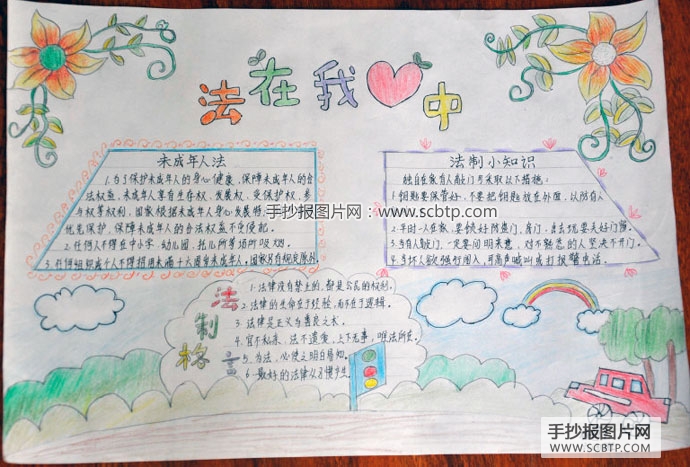 手抄报图片网
WWW.SCBTP.COM
法在我❤中
未成年人法
1.为了保护未成年人的身心健康,保障未成年人的合
法权益,未成年人享有生存权、发展权、受保护权、参
与权等权利,国家根据未成年人身心发展特
优先保护,保障未成年人的合法权益不受侵犯。
2.任何人不得在中小学、幼儿园、托儿所等场所吸烟。
3.任何组织或个人不得招用未满十六周岁未成年人,国家另有规定除外
法制小知识
独自在家有人敲门可采取以下措施:
1.钥匙要保管好,不要把钥匙放在外面,以防有人
2.平时一人在家,要快好防盗门、房门,自去玩要关好门窗。
3.当有人敲门,一定要问明来意,对不熟悉的人坚决不开门。
4.当坏人欲强行闯入,可高声喊叫或打报警电话。
手抄报图片网:www.scbtp.com
法制格言
1.法律没有禁止的,都是公民的权利。
2.法律的生命在于经验,而不在于逻辑。
3.法律是正义与善良之术。
4.官不私亲,法不遗爱,上下无事,唯法所在。
5.为法,必使之明白易知。
6.最好的法律从习惯产生
手抄报图片网
SCBTP.COM